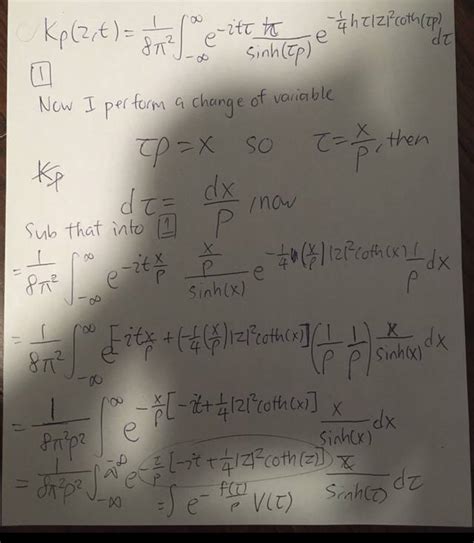 Kρ(z,t) = 1/8π² ∫_{-∞}^{∞} e^{-itτ} τ/sinh(τρ) e^{-1/4 hτ|z|²coth(τρ)} dτ
[1]
Now I perform a change of variable
τρ = x so τ = x/ρ, then
Kρ
dτ = dx/ρ, now
Sub that into [1]
= 1/8π² ∫_{-∞}^{∞} e^{-it x/ρ} (x/ρ)/sinh(x) e^{-1/4 (x/ρ)|z|²coth(x)} 1/ρ dx
= 1/8π² ∫_{-∞}^{∞} e^{[-itx/ρ + (-1/4(x/ρ)|z|²coth(x)]} (1/ρ 1/ρ) x/sinh(x) dx
= 1/8π²ρ² ∫_{-∞}^{∞} e^{-x/ρ[-it + 1/4|z|²coth(x)]} x/sinh(x) dx
= 1/8π²ρ² ∫_{-∞}^{∞} e^{-τ/ρ[-it + 1/4|z|²coth(z)]} τ/sinh(τ) dτ
= ∫ e^{-f(τ)/ρ} V(τ)